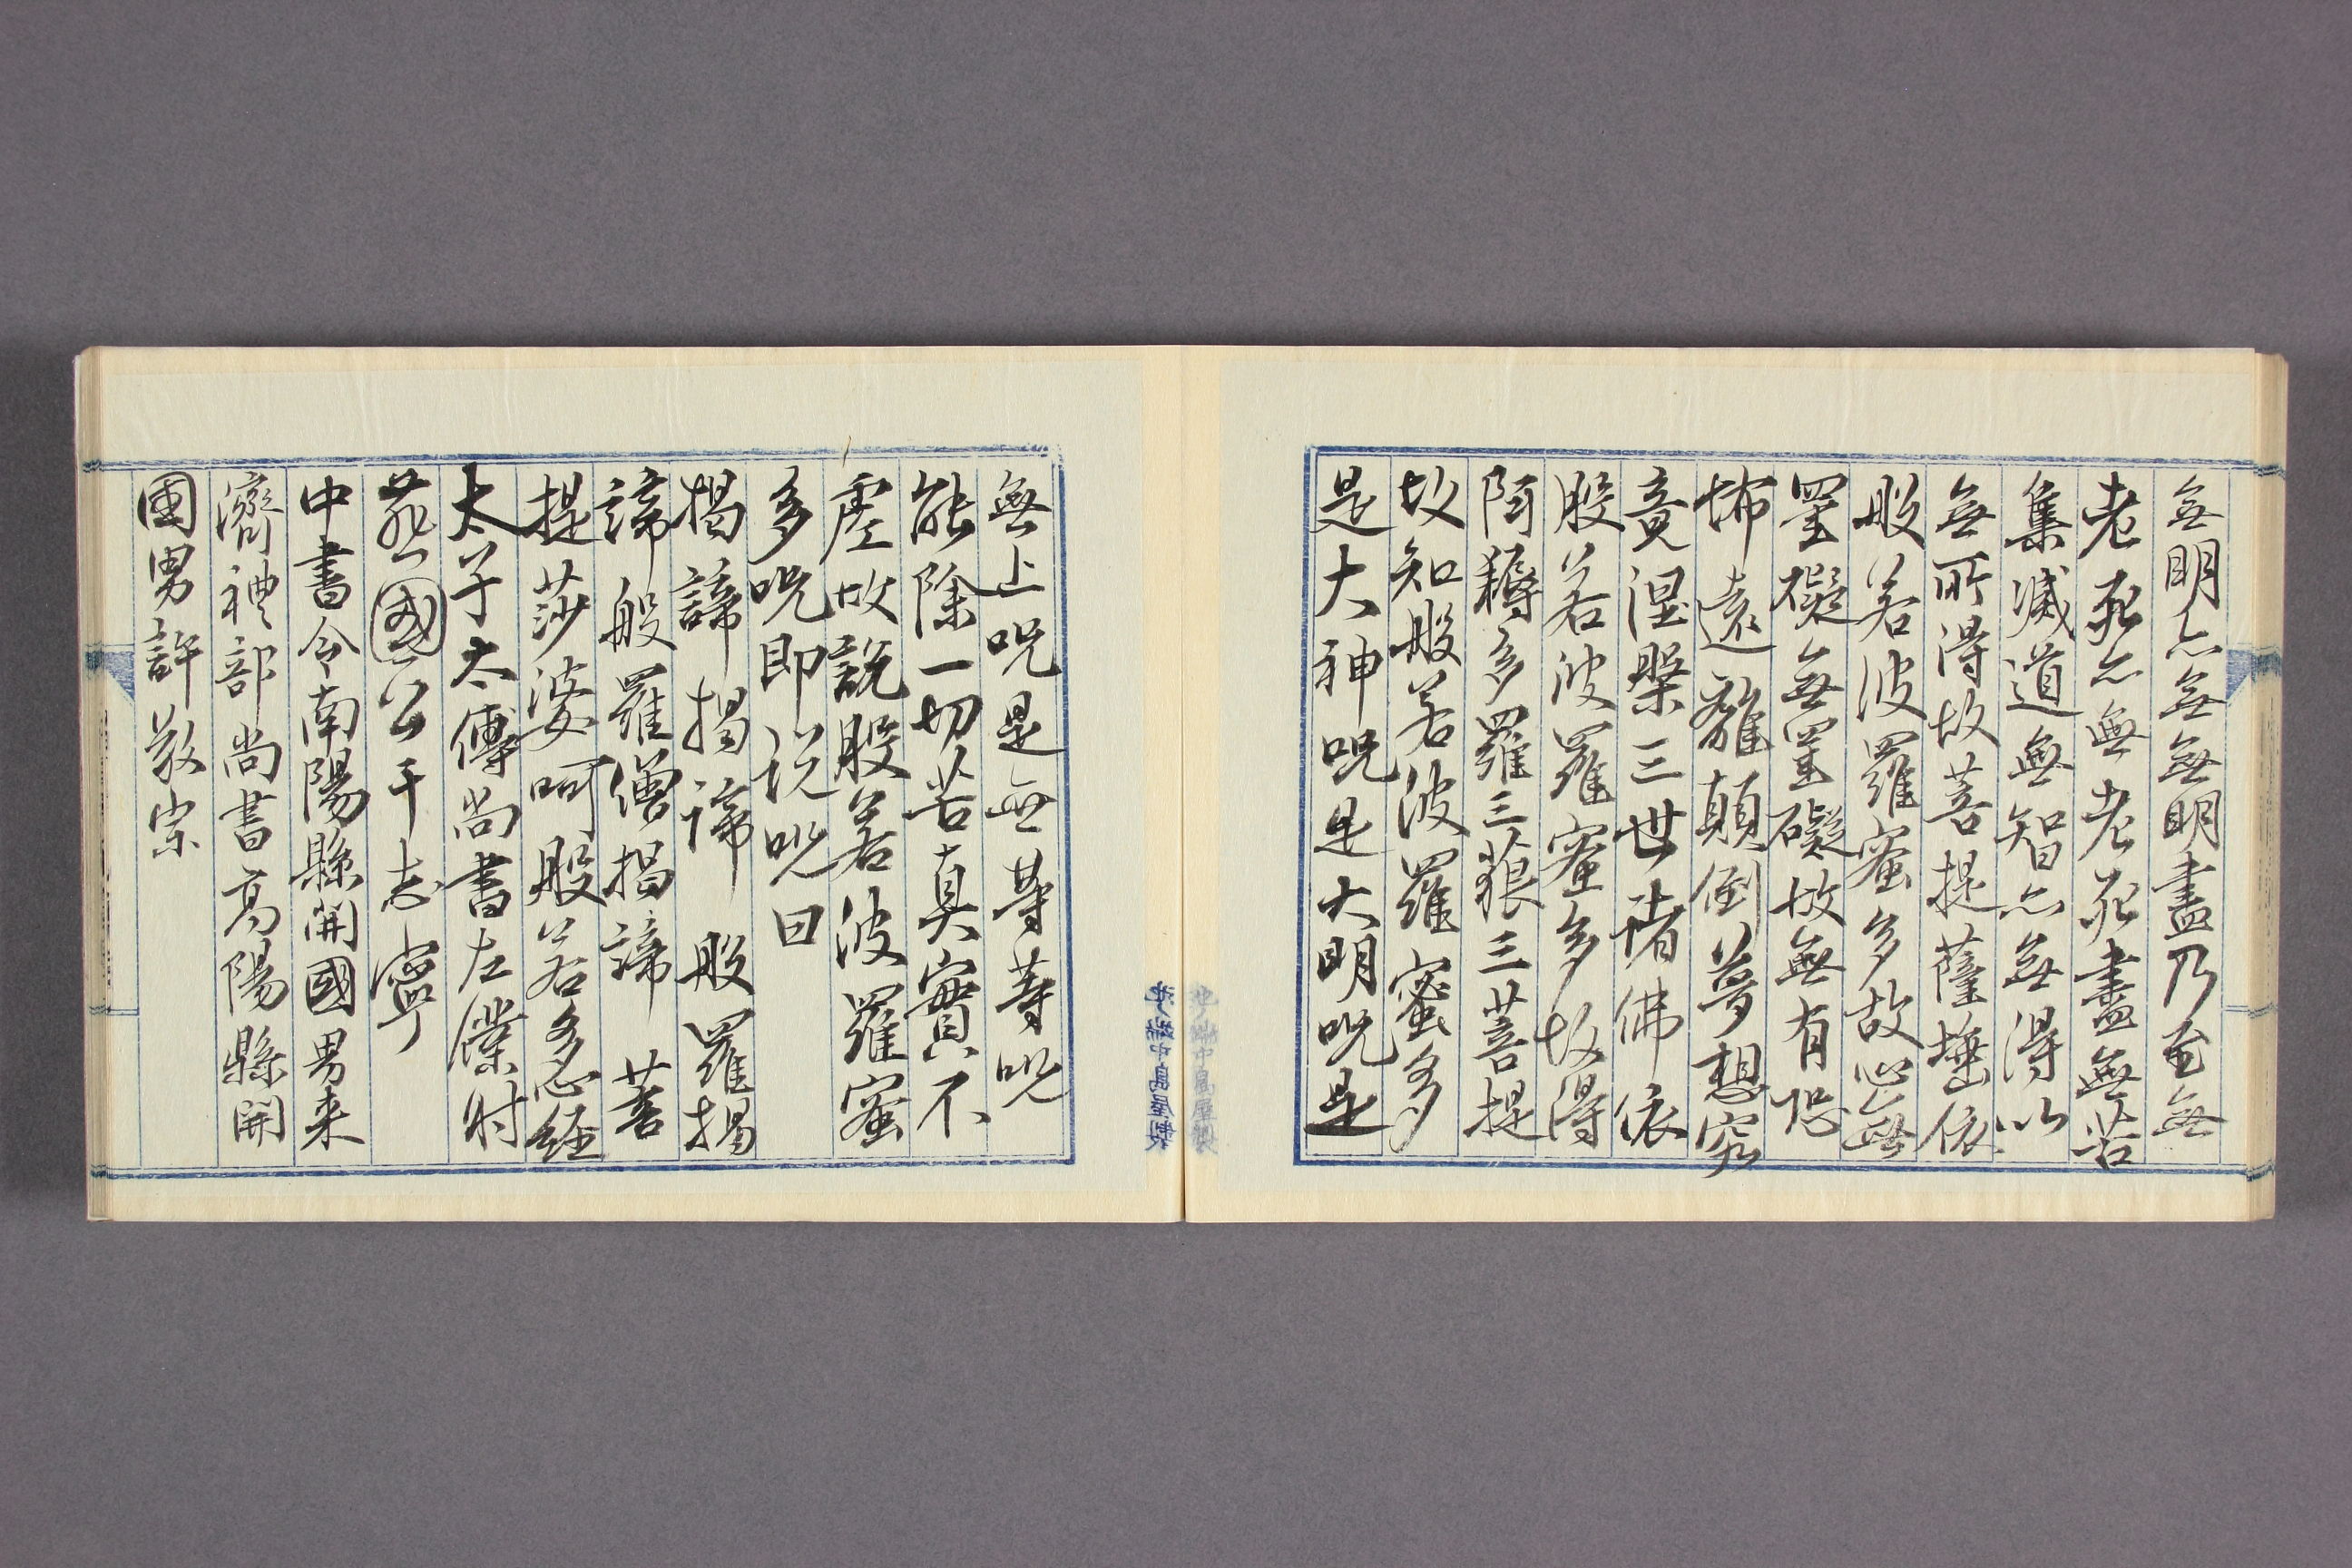 無明亦無無明盡乃至無
老死亦無老死盡無苦
集滅道無智亦無得以
無所得故菩提薩埵依
般若波羅蜜多故心無
罣礙無罣礙故無有恐
怖遠離顛倒夢想究
竟涅槃三世諸佛依
般若波羅蜜多故得
阿耨多羅三藐三菩提
故知般若波羅蜜多
是大神呪是大明呪是
無上呪是無等等呪
能除一切苦真實不
虛故說般若波羅蜜
多呪即說呪曰
揭諦揭諦 般羅揭
諦般羅僧揭諦 菩
提莎婆呵般若多心經
太子太傅尚書左僕射
燕國公于志寧
中書令南陽縣開國男来
濟禮部尚書高陽縣開
國男許敬宗